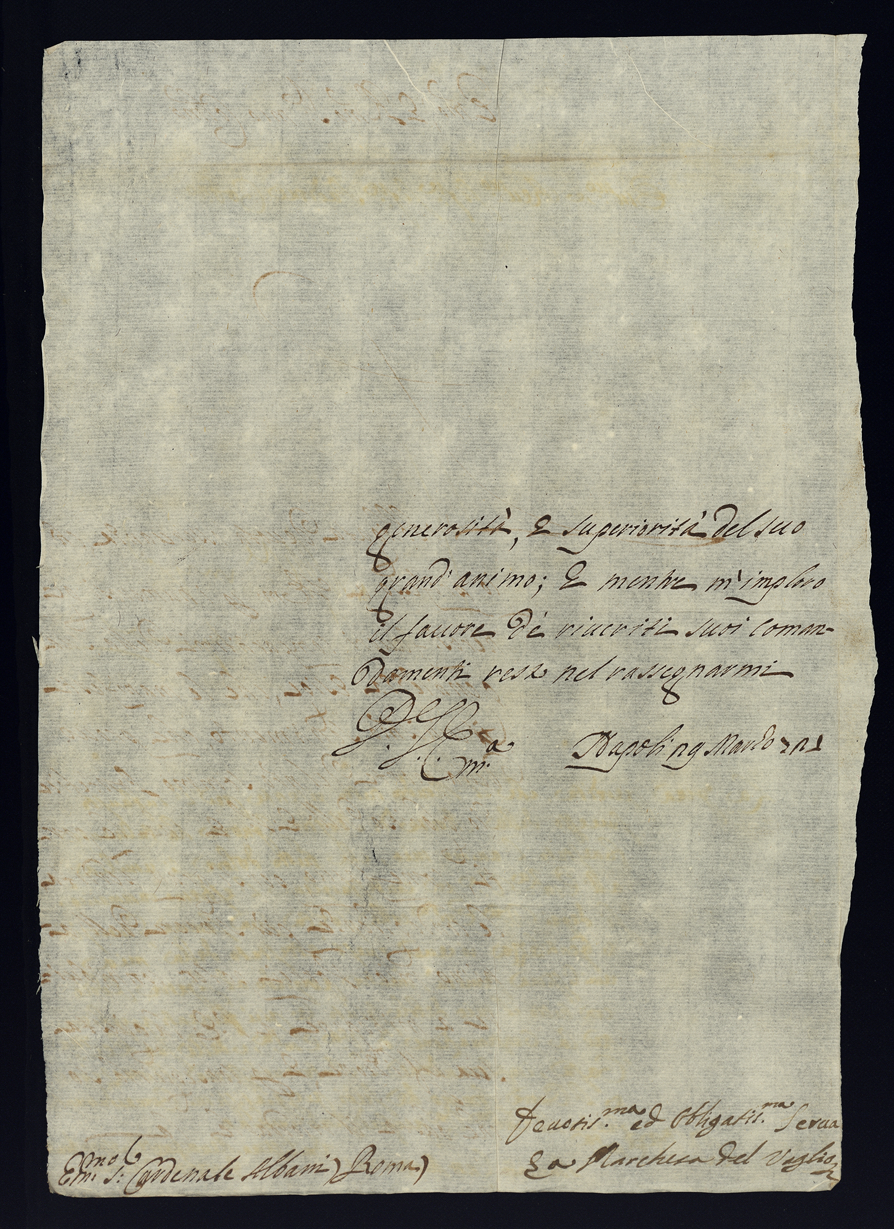 generosità, e superiorità del suo
grand'animo; e mentre m'imploro
il fauore de riueriti suoi coman-
damenti resto nel rassegnarmi
D. V. E.
m.a Napoli 29 Marzo 721
Deuotis.ma ed Obligatis.ma Serua
La Marchesa del Vaglio
Em.mo S.r Cardenale Albani) Roma)